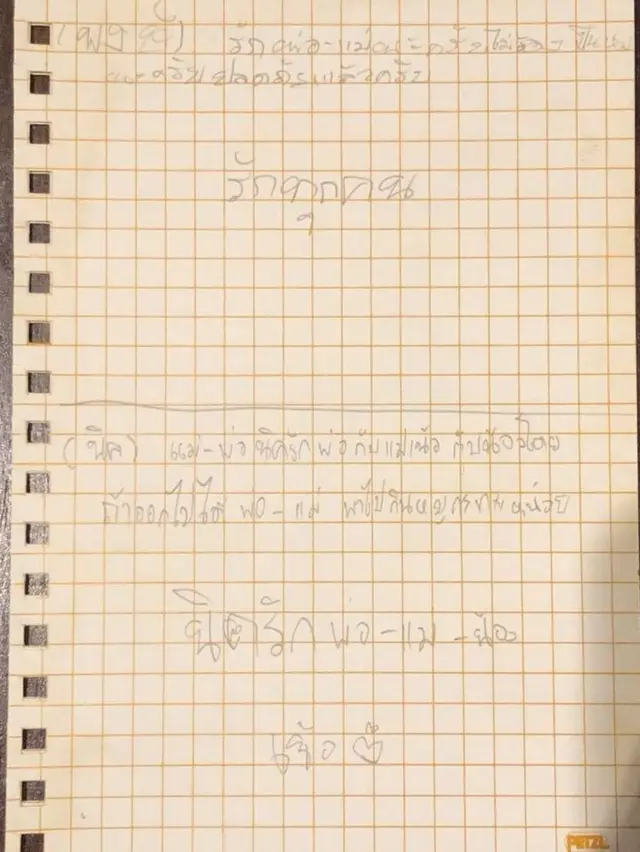 (พงษ์) รักพ่อ-แม่นะครับไม่ต้องเป็นห่วง
นะครับปลอดภัยแล้วครับ
รักทุกคน
(นิค) แม่-พ่อ นิครักพ่อกับแม่แล้ว กับน้องโดย
ถ้าออกไปได้ พ่อ-แม่ พาไปกินหมูกระทะหน่อย
นิครัก พ่อ-แม่ -น้อง
PETZL